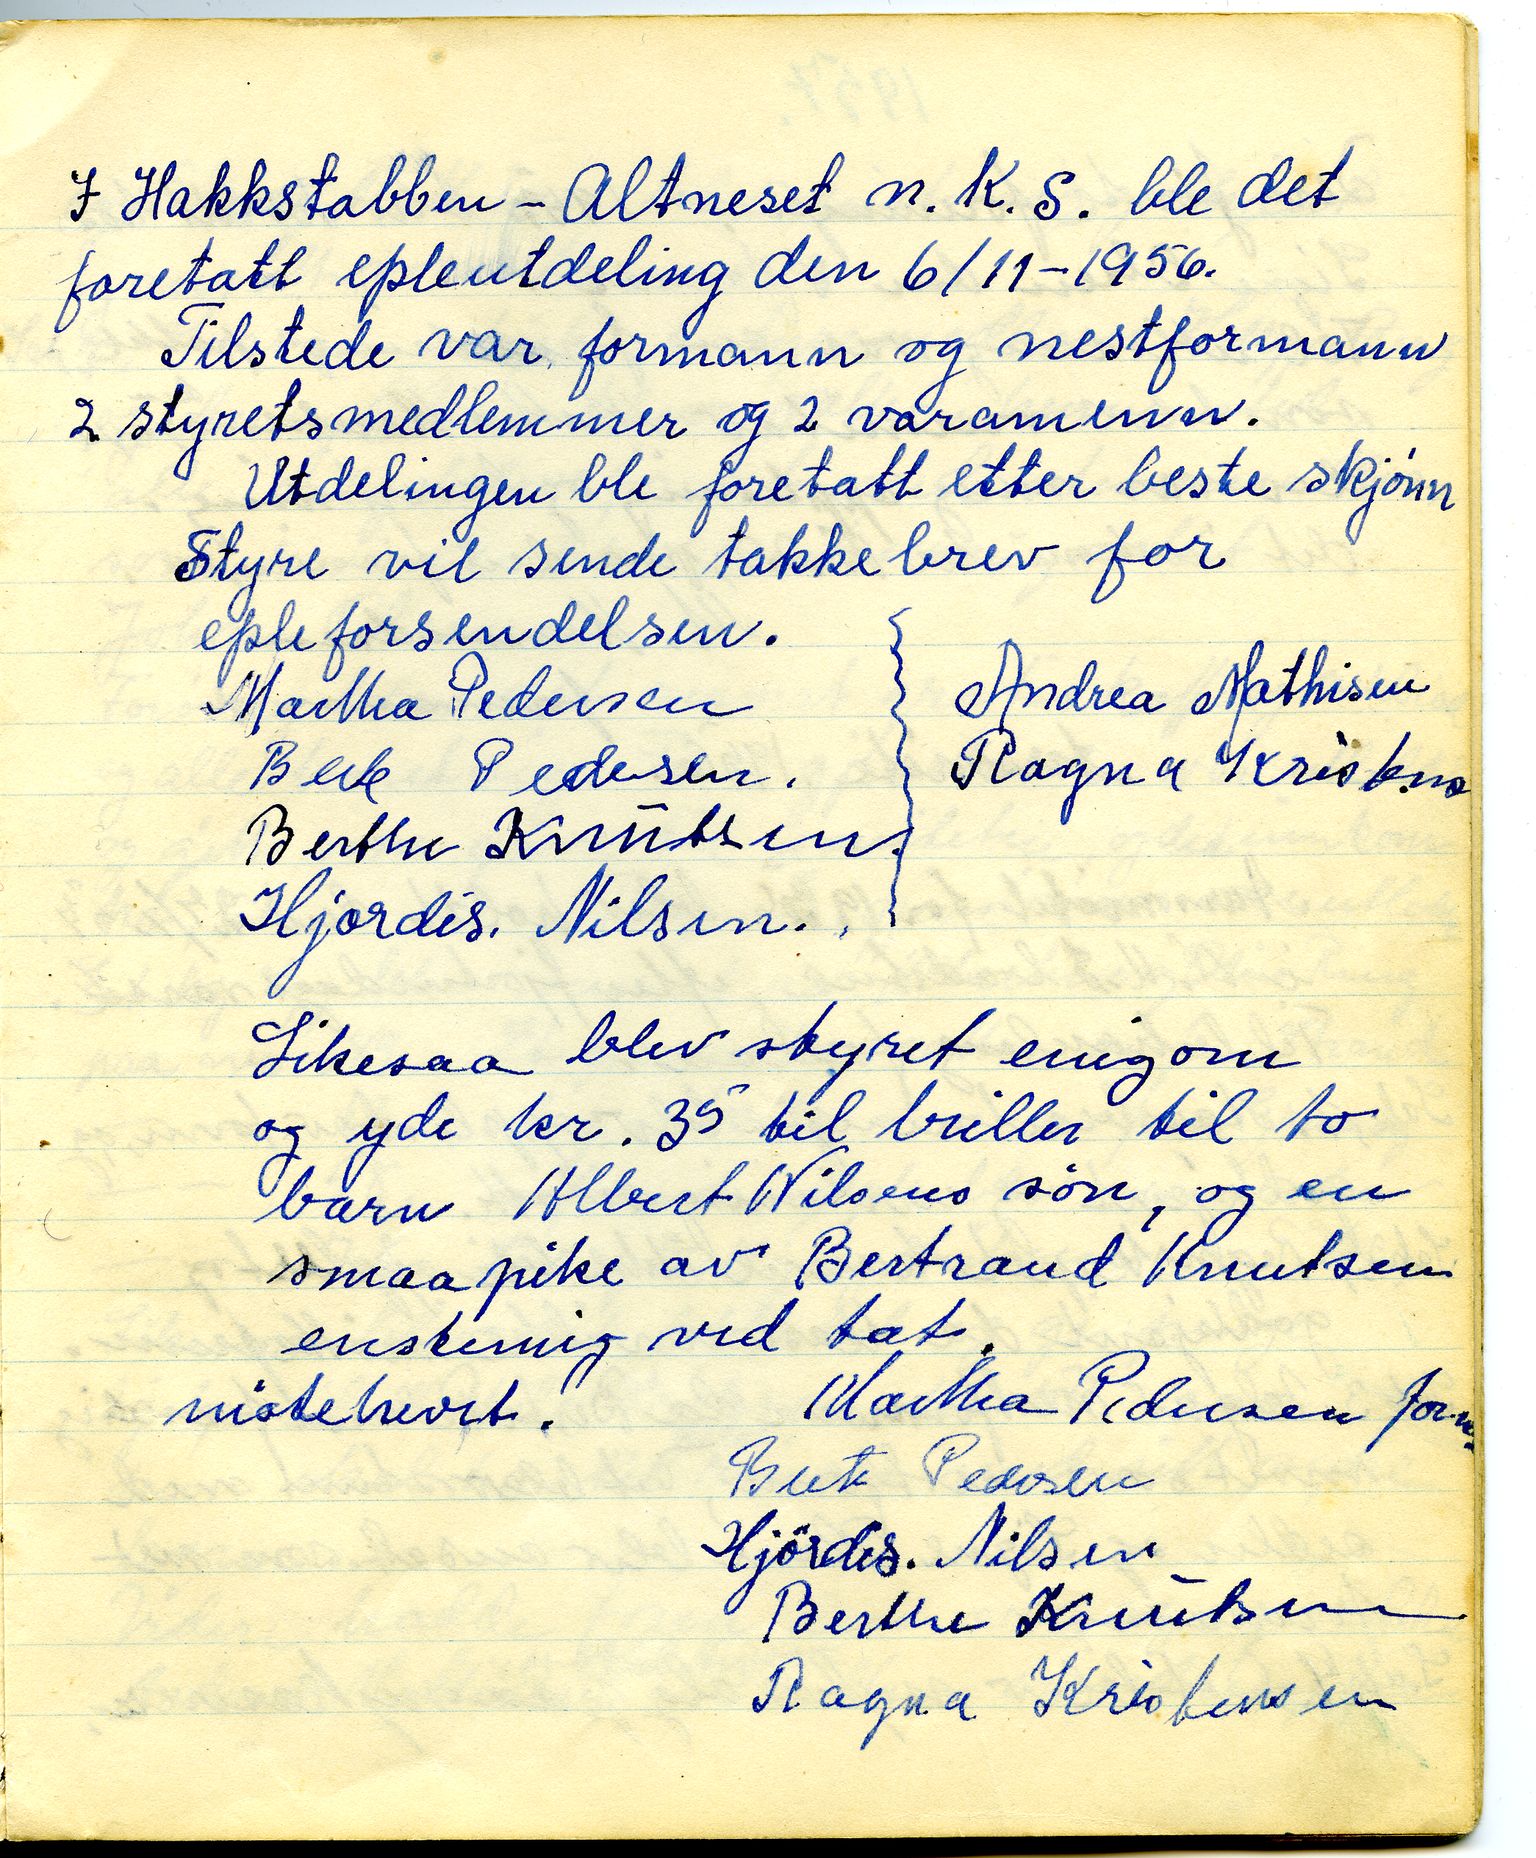 I Hakkstabben - Altneset n. K. S. ble det
foretatt epleutdeling den 6/11-1956.
Tilstede var formann og nestformann
2 styretsmedlemmer og 2 varamenn.
Utdelingen ble foretatt etter beste skjönn
Styre vil sende takkebrev for
epleforsendelsen.
Martha Pedersen
Berit Pedersen.
Berthe Knutsen.
Hjordis. Nilsen.
Andrea Mathisen
Ragna Kristens
Likesaa blev styret enig om
og yde kr. 35 til briller til to
barn Albert Nilsens sön, og en
smaapike av Bertrand Knutsen
enstemig ved tat.
möte hevet.
Martha Pedersen form.
Berit Pedersen
Hjördis. Nilsen
Berthe Knutsen
Ragna Kristensen